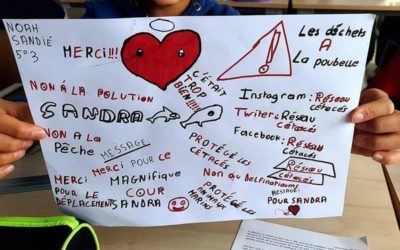 NOAH
SANDIÉ
5°3
MERCI!!!
C'ÉTAIT
TROP
BIEN!!!
Les déchets
A
La poubelle
NON À LA POLUTION
SANDRA
Instagram: Réseau
cétacés
Twiter: Réseau
cétacés
Facebook: Réseau
cétacés
NON A LA
Pêche
MESSAGE
PROTÉGÉ LES
CÉTACÉS
Réseau
cétacés
MERCI MERCI POUR CE
MAGNIFIQUE
POUR LE COUR
DÉPLACEMENT SANDRA
Non au Delfinariums
PROTÉGÉ LES
ANIMAUX
MARINS
MESSAGE
POUR SANDRA